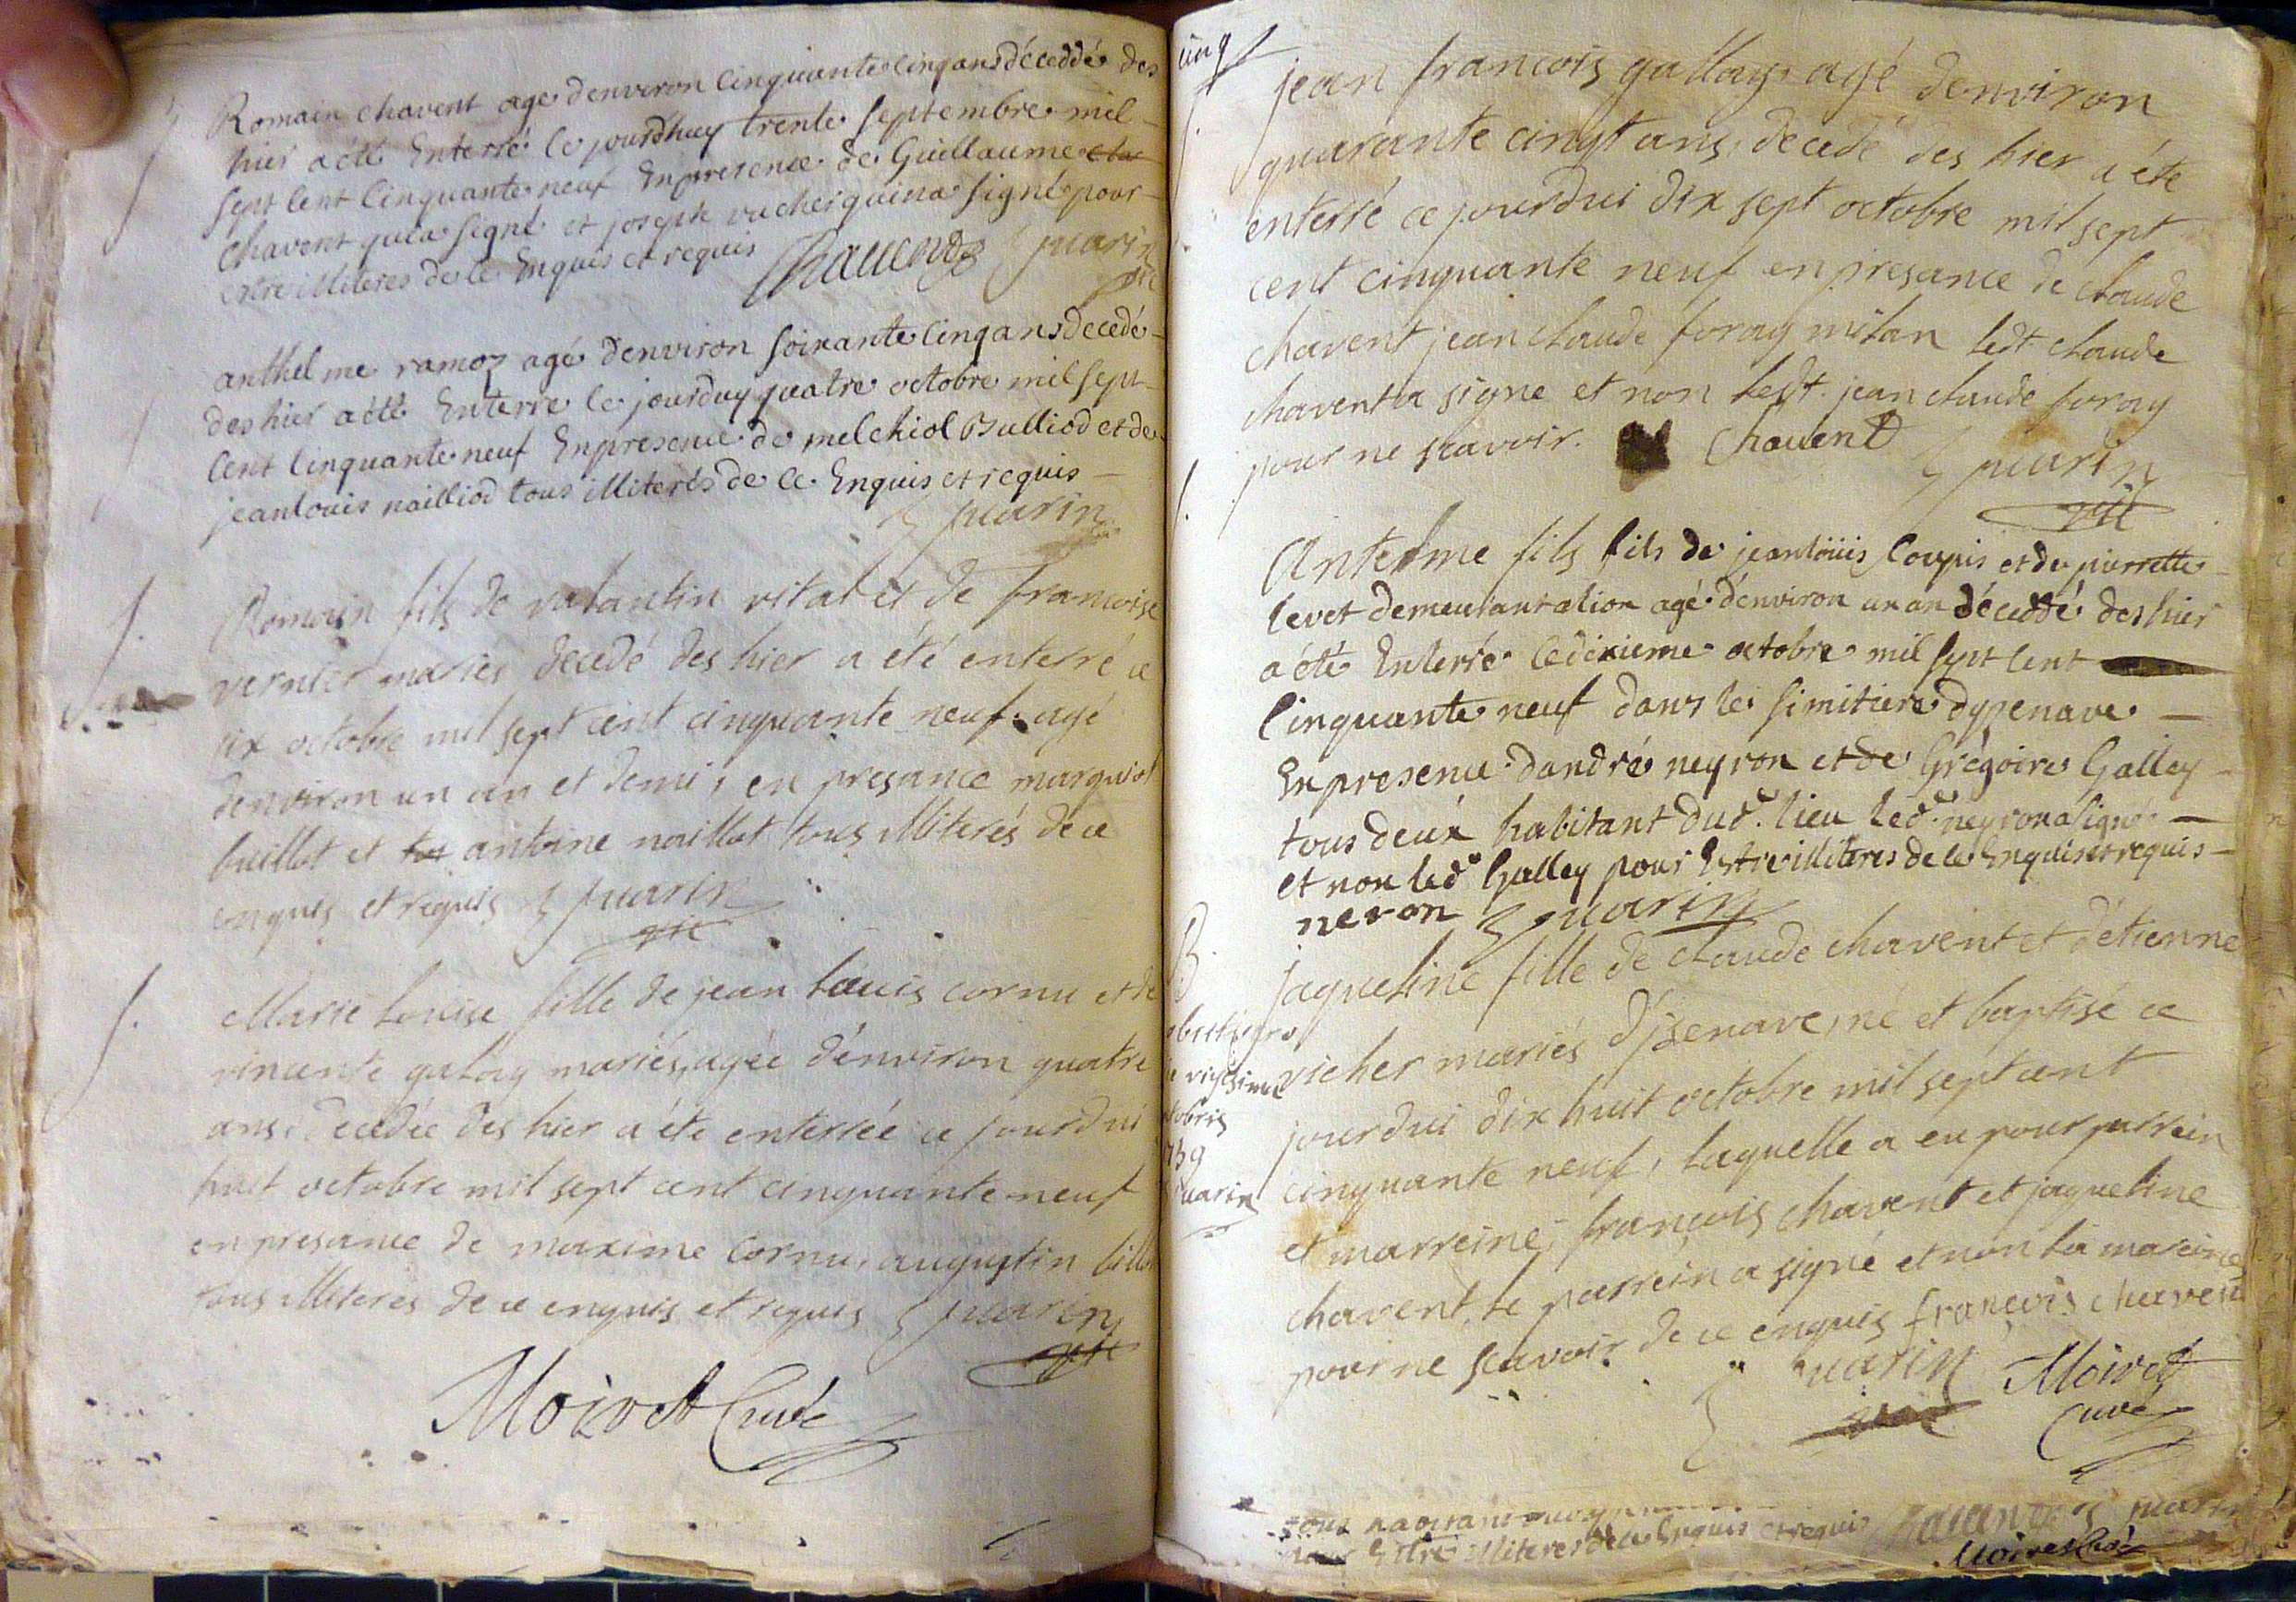 Romain chavent agé denviron cinquante cinq ans déceddé des
hier a été Enterré ce jourdhuy trente septembre mil
sept cent cinquante neuf En presence de Guillaume
chavent qui a signé et joseph vucher qui n'a signé pour
estre illiteres de ce Enquis et requis Chavend puarin
vic
anthelme ramoz agé denviron soixante cinq ans decedé
des hier a été Enterré ce jourduy quatre octobre mil sept
cent cinquante neuf En presence de melchiol Bulliod et de
jean louis nailliod tous illiterés de ce Enquis et requis
puarin
Romain fils de valantin vital et de francoise
vernier mariés decedé des hier a été enterré ce
six octobre mil sept cent cinquante neuf agé
denviron un an et demi, en presance marquiol
buillot et antoine naillot tous illiterés de ce
enquis et requis puarin
vic
Marie Louise fille de jean Louis cornu et de
vincente galay mariés, agée d'environ quatre
ans decedée des hier a éte enterrée ce jourdui
huit octobre mil sept cent cinquante neuf
en presance de maxime Cornu, augustin
tous illiteres de ce enquis et requis puarin
vic
Moiret Curé
cinq
jean francois gallay agé denviron
quarante cinqt ans, decedé des hier a éte
enterré ce jourdui dix sept octobre mil sept
cent cinquante neuf en presance de claude
chavent jean claude foray milan ledt claude
chavent a signe et non ledt. jean claude foray
pour ne scavoir. Chavent puarin
vic
Antelme fils fils de jean loüis Coupis et de pierrette
levet demeurant a lion agé d'environ un an décedé des hier
a été Enterré le dixieme octobre mil sept cent
cinquante neuf dans le simitiere dysenave
En presence d'andré neyron et de Grégoire Galley
tous deux habitant dud. lieu led. neyron a signé
et non led. Galley pour Estre illiteres de ce Enquis et requis
neron puarin
jaqueline fille de claude chavent et d'étienne
vicher mariés d'jsenave, né et baptisé ce
jourdui dix huit octobre mil sept cent
cinquante neuf, laquelle a eu pour parrein
et marreine, françois chavent et jaqueline
chavent, le parrein a signé et non la mareine
pour ne scavoir de ce enquis françois chavent
puarin Moiret
Curé
B
1759
puarin
Estre illiteres de ce Enquis et requis Chavend puarin
Moiret Curé